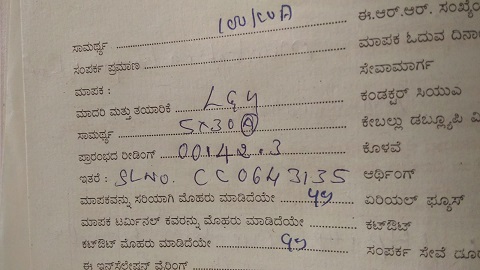 100/10A ಈ.ಆರ್.ಆರ್.
ಸಾಮರ್ಥ್ಯ ಮಾಪಕ ಓದುವ
ಸಂಪರ್ಕ ಪ್ರಮಾಣ ಸೇವಾಮಾರ್ಗ
ಮಾಪಕ : ಕಂಡಕ್ಟರ್ ಸಿಯುಎ
ಮಾದರಿ ಮತ್ತು ತಯಾರಿಕೆ L&G ಕೇಬಲ್ಲು ಡಬ್ಲ್ಯೂಪಿ
ಸಾಮರ್ಥ್ಯ 5X30A ಕೊಳವೆ
ಪ್ರಾರಂಭದ ರೀಡಿಂಗ್ 00142.3 ಅರ್ಥಿಂಗ್
ಇತರೆ : SLNO. CC0643135 ಏರಿಯಲ್ ಫ್ಯೂಸ್
ಮಾಪಕವನ್ನು ಸರಿಯಾಗಿ ಮೊಹರು ಮಾಡಿದೆಯೇ ಕಟ್‌ಔಟ್
ಮಾಪಕ ಟರ್ಮಿನಲ್ ಕವರನ್ನು ಮೊಹರು ಮಾಡಿದೆಯೇ ಸಂಪರ್ಕ ಸೇವೆ
ಕಟ್‌ಔಟ್ ಮೊಹರು ಮಾಡಿದೆಯೇ
ಈ ಇನ್‌ಸ್ಟಲೇಷನ್ ವೈರಿಂಗ್